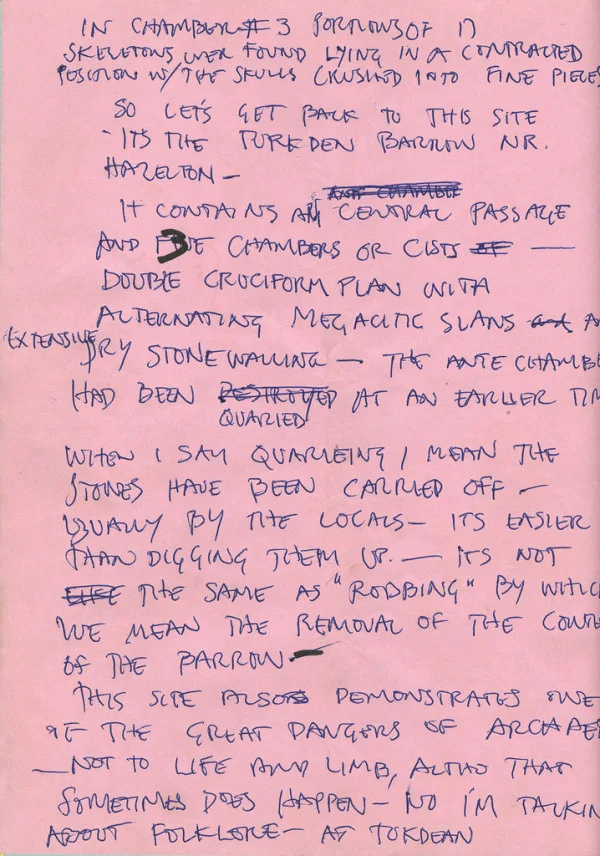 IN CHAMBER # 3 PORTIONS OF 17
SKELETONS WER FOUND LYING IN A CONTRACTED
POSITION W/ THE SKULLS CRUSHED INTO FINE PIECES
SO LET'S GET BACK TO THIS SITE
- ITS THE TURKDEN BARROW NR.
HAZELTON -
ANTE CHAMBER
IT CONTAINS AN CENTRAL PASSAGE
AND 3 CHAMBERS OR CISTS OF —
DOUBLE CRUCIFORM PLAN WITH
ALTERNATING MEGALITIC SLABS and A
EXTENSIVE
DRY STONE WALLING — THE ANTE CHAMBE
HAD BEEN DESTROYED AT AN EARLIER TIM
QUARIED
WHEN I SAY QUARREING I MEAN THE
STONES HAVE BEEN CARRIED OFF —
USUALLY BY THE LOCALS — ITS EASIER
THAN DIGGING THEM UP. — ITS NOT
THE SAME AS "ROBBING" BY WHICH
WE MEAN THE REMOVAL OF THE CONTE
OF THE BARROW —
THIS SITE ALSO DEMONSTRATES ONE
OF THE GREAT DANGERS OF ARCHAEO
— NOT TO LIFE AND LIMB, ALTHO THAT
SOMETIMES DOES HAPPEN — NO I'M TALKIN
ABOUT FOLKLORE — AT TURKDEAN